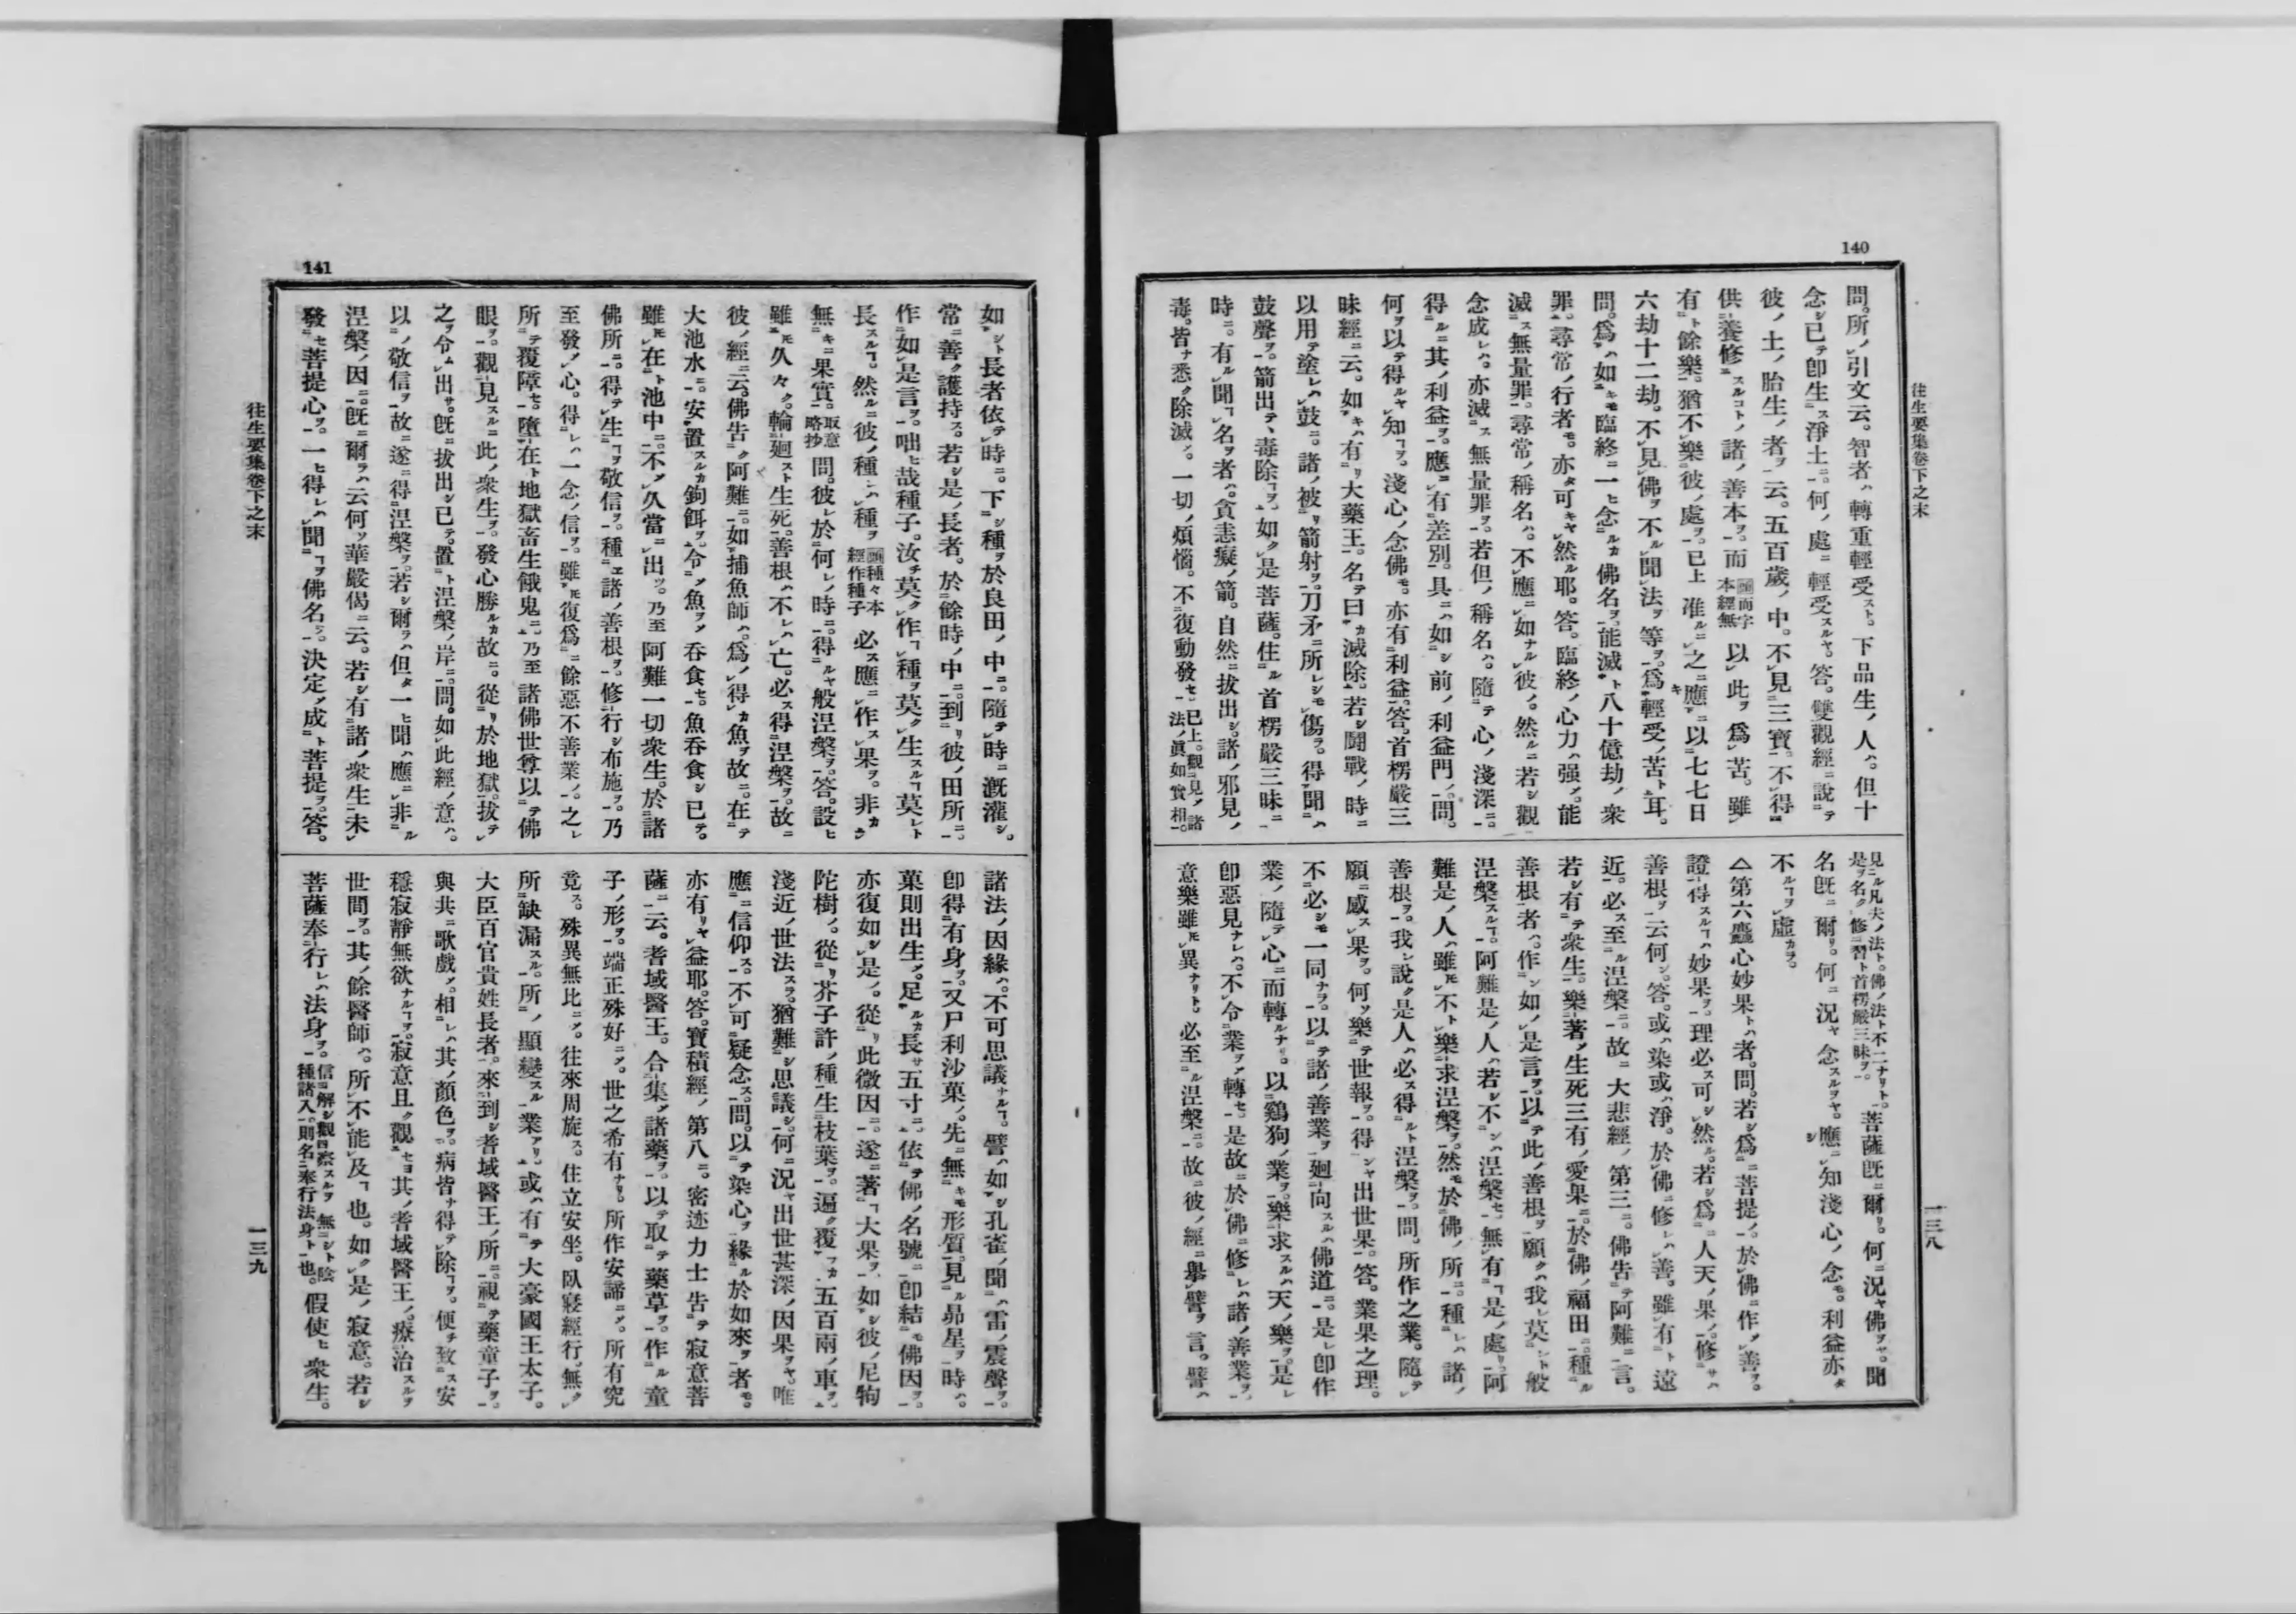 140
往生要集卷下之末
一三八
問。所引文云。智者轉重輕受。下品生人。但十
念已卽生淨土。何處輕受。答。雙觀經說
彼土胎生者云。五百歲中。不見三寶。不得
供養修諸善本。而 而字本經無 以此爲苦。雖
有餘樂。猶不樂彼處。已上 准之應以七七日
六劫十二劫。不見佛不聞法等。爲輕受苦耳。
問。爲如臨終一念佛名。能滅八十億劫衆
罪。尋常行者。亦可然耶。答。臨終心力强。能
滅無量罪。尋常稱名。不應如彼。然若觀
念成。亦滅無量罪。若但稱名。隨心淺深。
得其利益。應有差別。具如前利益門。問。
何以得知。淺心念佛。亦有利益。答。首楞嚴三
昧經云。如有大藥王。名曰滅除。若鬪戰時
以用塗鼓。諸被箭射。刀矛所傷。得聞
鼓聲。箭出毒除。如是菩薩。住首楞嚴三昧
時。有聞名者。貪恚癡箭。自然拔出。諸邪見
毒。皆悉除滅。一切煩惱。不復動發。已上。觀見諸法眞如實相。
見凡夫法。佛法不二。是名修習首楞嚴三昧。 菩薩旣爾。何況佛。聞
名旣爾。何況念。應知淺心念。利益亦
不虛。
△第六麤心妙果者。問。若爲菩提。於佛作善。
證得妙果。理必可然。若爲人天果。修
善根云何。答。或染或淨。於佛修善。雖有遠
近。必至涅槃。故大悲經第三。佛告阿難言。
若有衆生。樂著生死三有愛果。於佛福田種
善根者。作如是言。以此善根願我莫般
涅槃。阿難是人若不涅槃。無有是處。阿
難是人雖不樂求涅槃。然於佛所。種諸
善根。我說是人必得涅槃。問。所作之業。隨
願感果。何樂世報。得出世果。答。業果之理。
不必一同。以諸善業廻向佛道。是卽作
業。隨心而轉。以鷄狗業。樂求天樂。是
卽惡見。不令業轉。是故於佛修諸善業。
意樂雖異。必至涅槃。故彼經擧譬言。譬
141
往生要集卷下之末
一三九
如長者依時。下種於良田中。隨時漑灌。
常善護持。若是長者。於餘時中。到彼田所。
作如是言。咄哉種子。汝莫作種莫生莫
長。然彼種種 種々本經作種子 必應作果。非
無果實。取意略抄 問。彼於何時。得般涅槃。答。設
雖久々輪廻生死。善根不亡。必得涅槃。故
彼經云。佛告阿難。如捕魚師。爲得魚故。在
大池水。安置鉤餌。令魚呑食。魚呑食已。
雖在池中。不久當出。乃至 阿難一切衆生。於諸
佛所。得生敬信。種諸善根。修行布施。乃
至發心。得一念信。雖復爲餘惡不善業之
所覆障。墮在地獄畜生餓鬼。乃至 諸佛世尊以佛
眼。觀見此衆生。發心勝故。從於地獄。拔
之令出。旣拔出已。置涅槃岸。問。如此經意。
以敬信故。遂得涅槃。若爾但一聞應非
涅槃因。旣爾云何華嚴偈云。若有諸衆生未
發菩提心。一得聞佛名。決定成菩提。答。
諸法因緣。不可思議。譬如孔雀。聞雷震聲。
卽得有身。又尸利沙菓。先無形質。見昴星時。
菓則出生。足長五寸。依佛名號。卽結佛因。
亦復如是。從此微因。遂著大果。如彼尼拘
陀樹。從芥子許種生枝葉。遍覆五百兩車。
淺近世法。猶難思議。何況出世甚深因果。唯
應信仰。不可疑念。問。以染心緣於如來者。
亦有益耶。答。寶積經第八。密迹力士告寂意菩
薩云。耆域醫王。合集諸藥。以取藥草。作童
子形。端正殊好。世之希有。所作安諦。所有究
竟。殊異無比。往來周旋。住立安坐。臥寢經行。無
所缺漏。所顯變業。或有大豪國王太子。
大臣百官貴姓長者。來到耆域醫王所。視藥童子。
與共歌戲。相其顏色。病皆得除。便致安
穩寂靜無欲。寂意且觀其耆域醫王。療治
世間。其餘醫師。所不能及也。如是寂意。若
菩薩奉行法身。信解觀察無陰種諸入則名奉行法身也。 假使衆生。